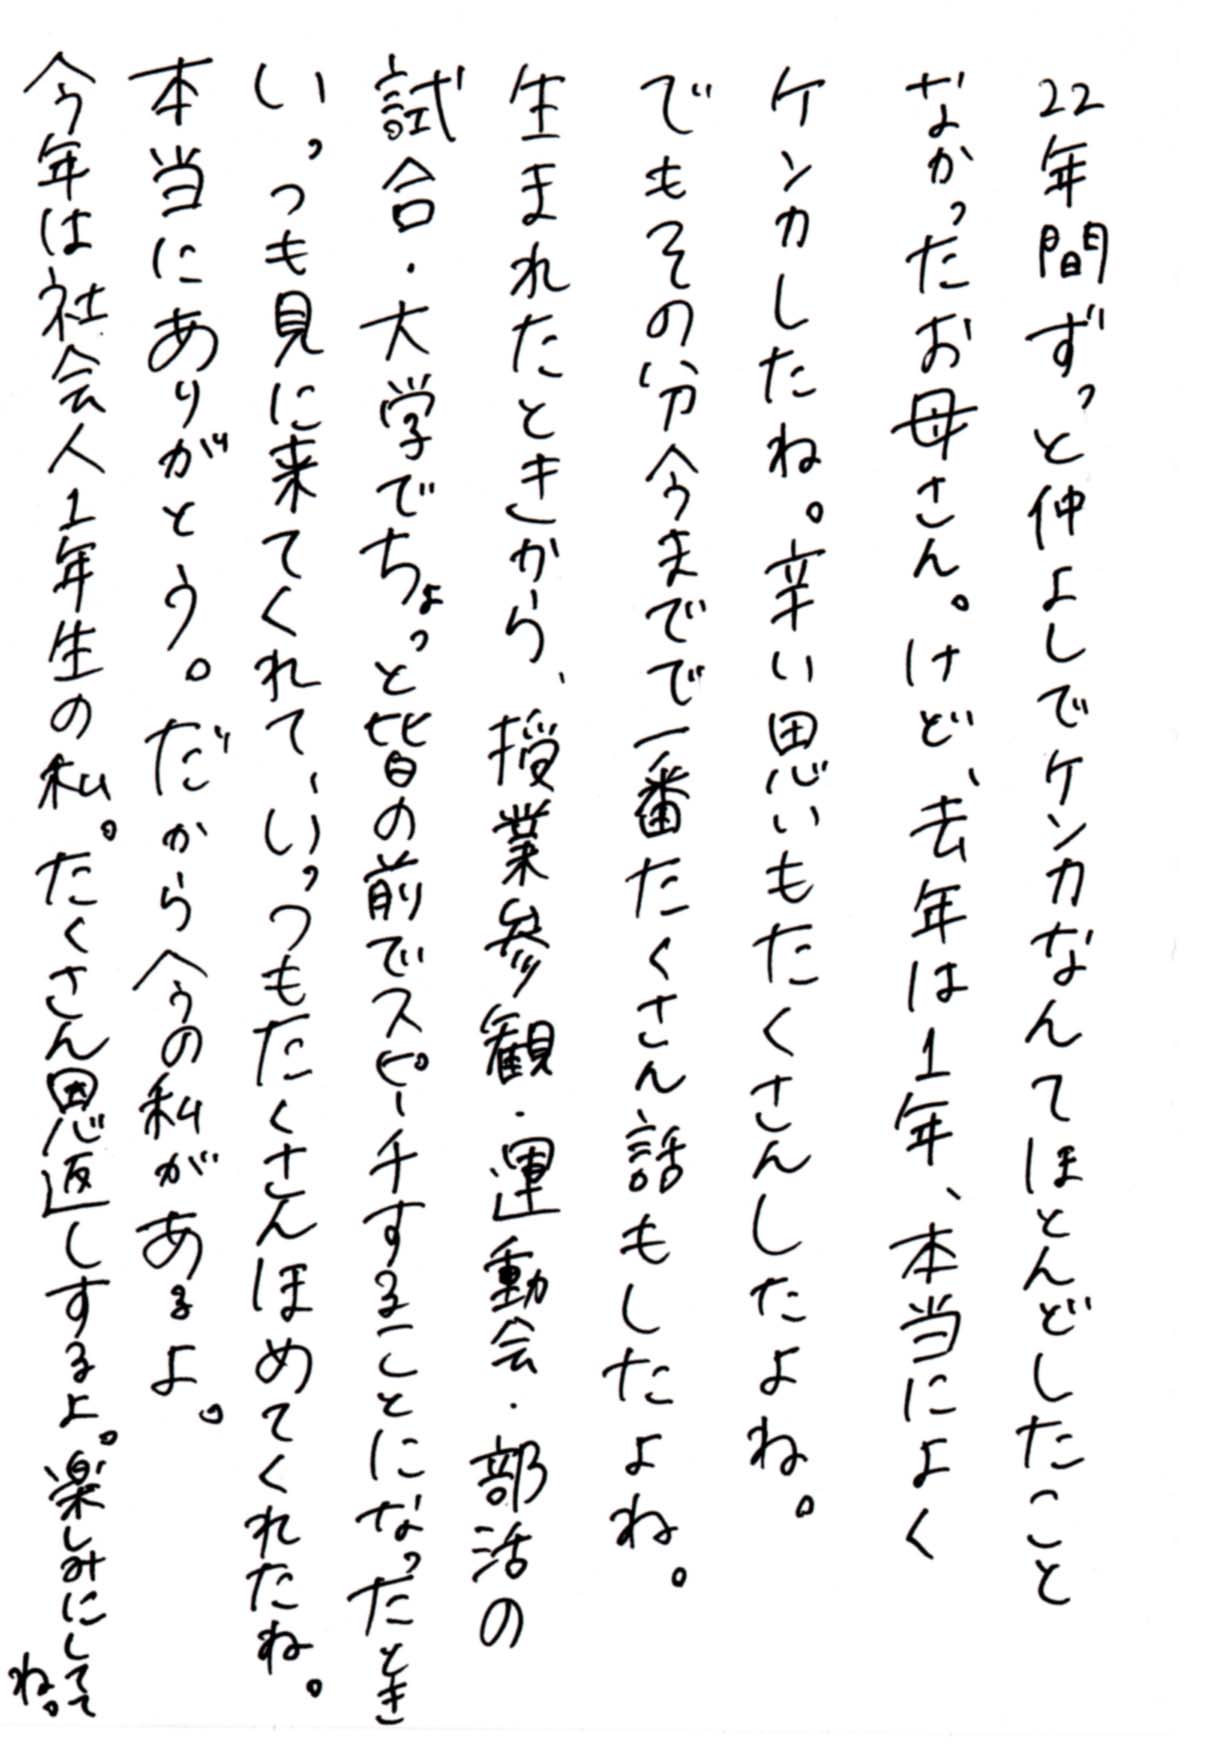 22年間ずっと仲よしでケンカなんてほとんどしたこと
なかったお母さん。けど、去年は1年、本当によく
ケンカしたね。辛い思いもたくさんしたよね。
でもその分今までで一番たくさん話もしたよね。
生まれたときから、授業参観・運動会・部活の
試合・大学でちょっと皆の前でスピーチすることになったとき
いっつも見に来てくれて、いっつもたくさんほめてくれたね。
本当にありがとう。だから今の私があるよ。
今年は社会人1年生の私。たくさん恩返しするよ。楽しみにしてて
ね。